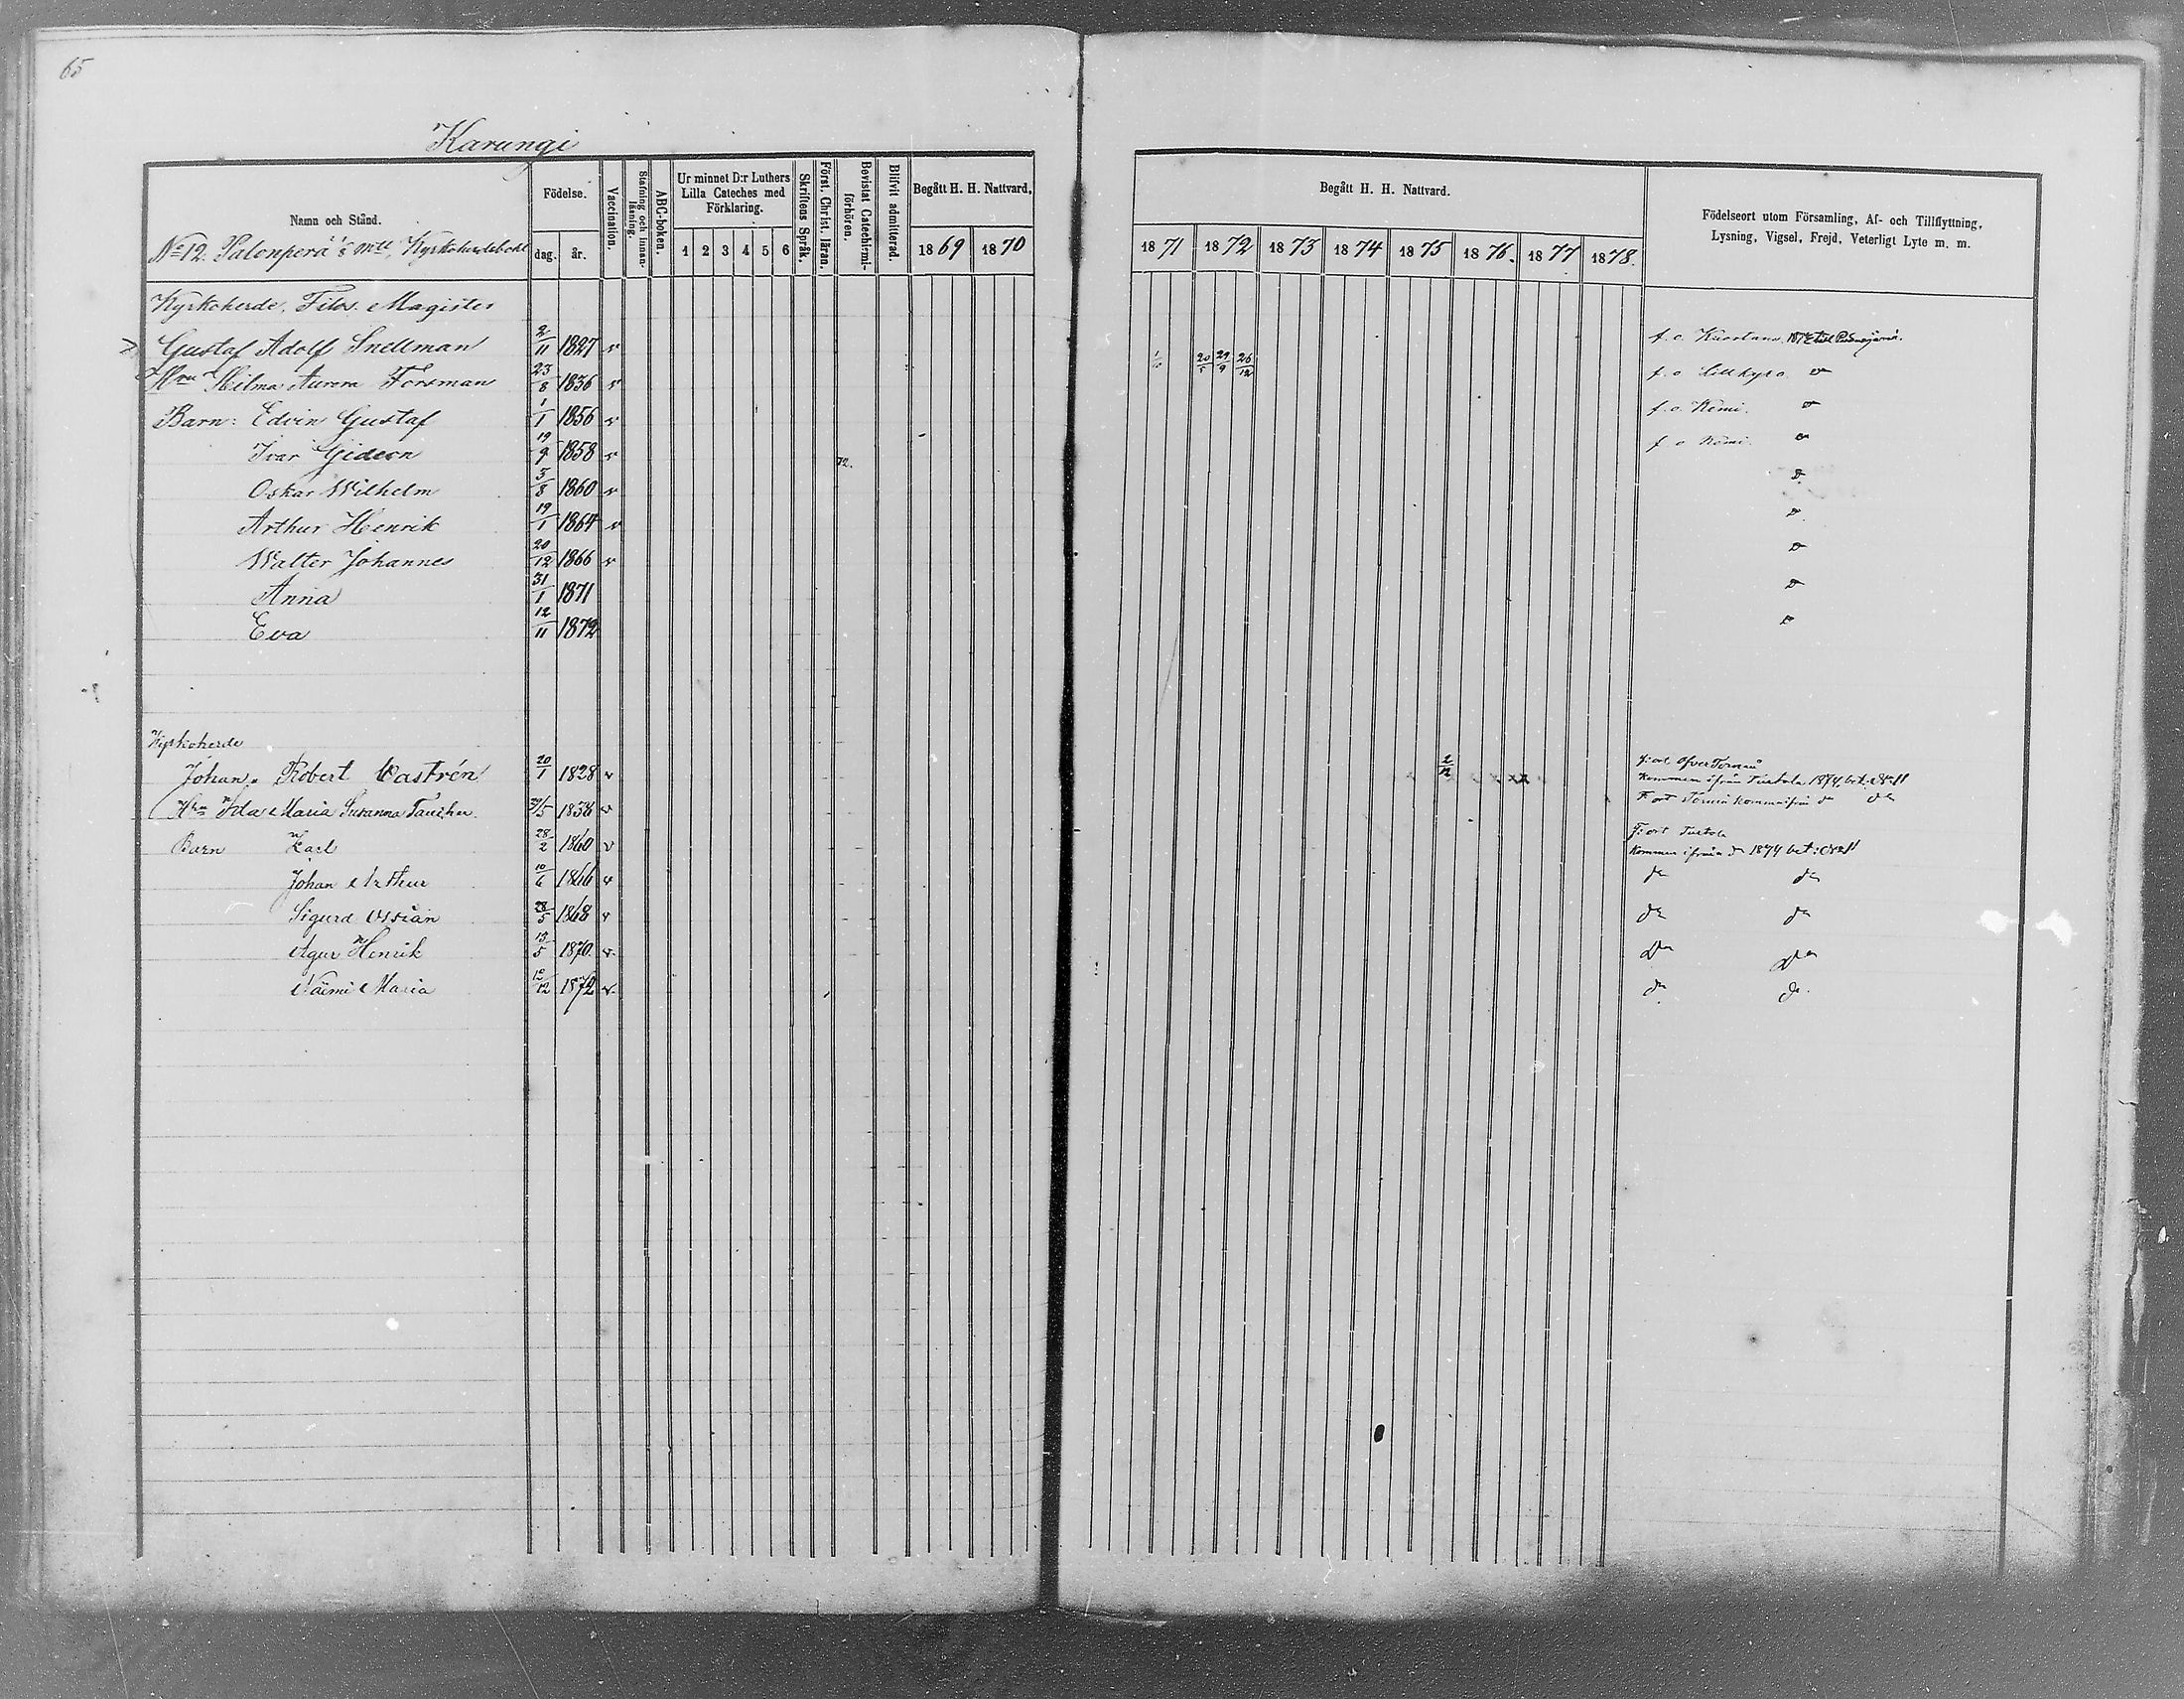 65
Karungi
Namn och Stånd.
No 12. Palonperä's Kyrkoherdebohl
Födelse.
dag. år.
Vaccination.
Stafning och innanläsning.
ABC-boken.
Ur minnet D:r Luthers Lilla Cateches med Förklaring.
1 2 3 4 5 6
Skriftens Språk.
Först. Christ. läran.
Bevistat Catechismiförhören.
Blifvit admitterad.
Begått H. H. Nattvard.
1869 1870
Begått H. H. Nattvard.
1871 1872 1873 1874 1875 1876. 1877 1878.
Födelseort utom Församling, Af- och Tillflyttning,
Lysning, Vigsel, Frejd, Veterligt Lyte m. m.
Kyrkoherde, Filos. Magister
Gustaf Adolf Snellman 2/11 1827 v f. o. Kuortane. 1874 till
Hru Hilma Aurora Forsman 23/8 1836 v 20/5 29/9 26/12 f. o Lillkyro
Barn: Edvin Gustaf 1/1 1856 v f. o. Kemi.
Ivar Gideon 19/9 1858 v 72. f o Kemi.
Oskar Wilhelm 5/8 1860 v
Arthur Henrik 19/1 1864 v
Walter Johannes 20/12 1866 v
Anna 31/1 1871
Eva 12/11 1872
Kyrkoherde
Johan Robert Castrén 20/1 1828 v x x F: ort Öfver Torneå
Kommen ifrån Turtola 1874, bet:
Hru Ida Maria Susanna Taucher 30/5 1838 v F ort Torneå kommen ifrån do do
Barn Karl 28/2 1860 v F: ort Turtola
Kommen ifrån do 1874 bet:
Johan Arthur 10/6 1866 v do do
Sigurd Ossian 28/5 1868 v do do
Agur Henrik 13/5 1870. v Do Do
Naimi Maria 12/12 1872 v do do.